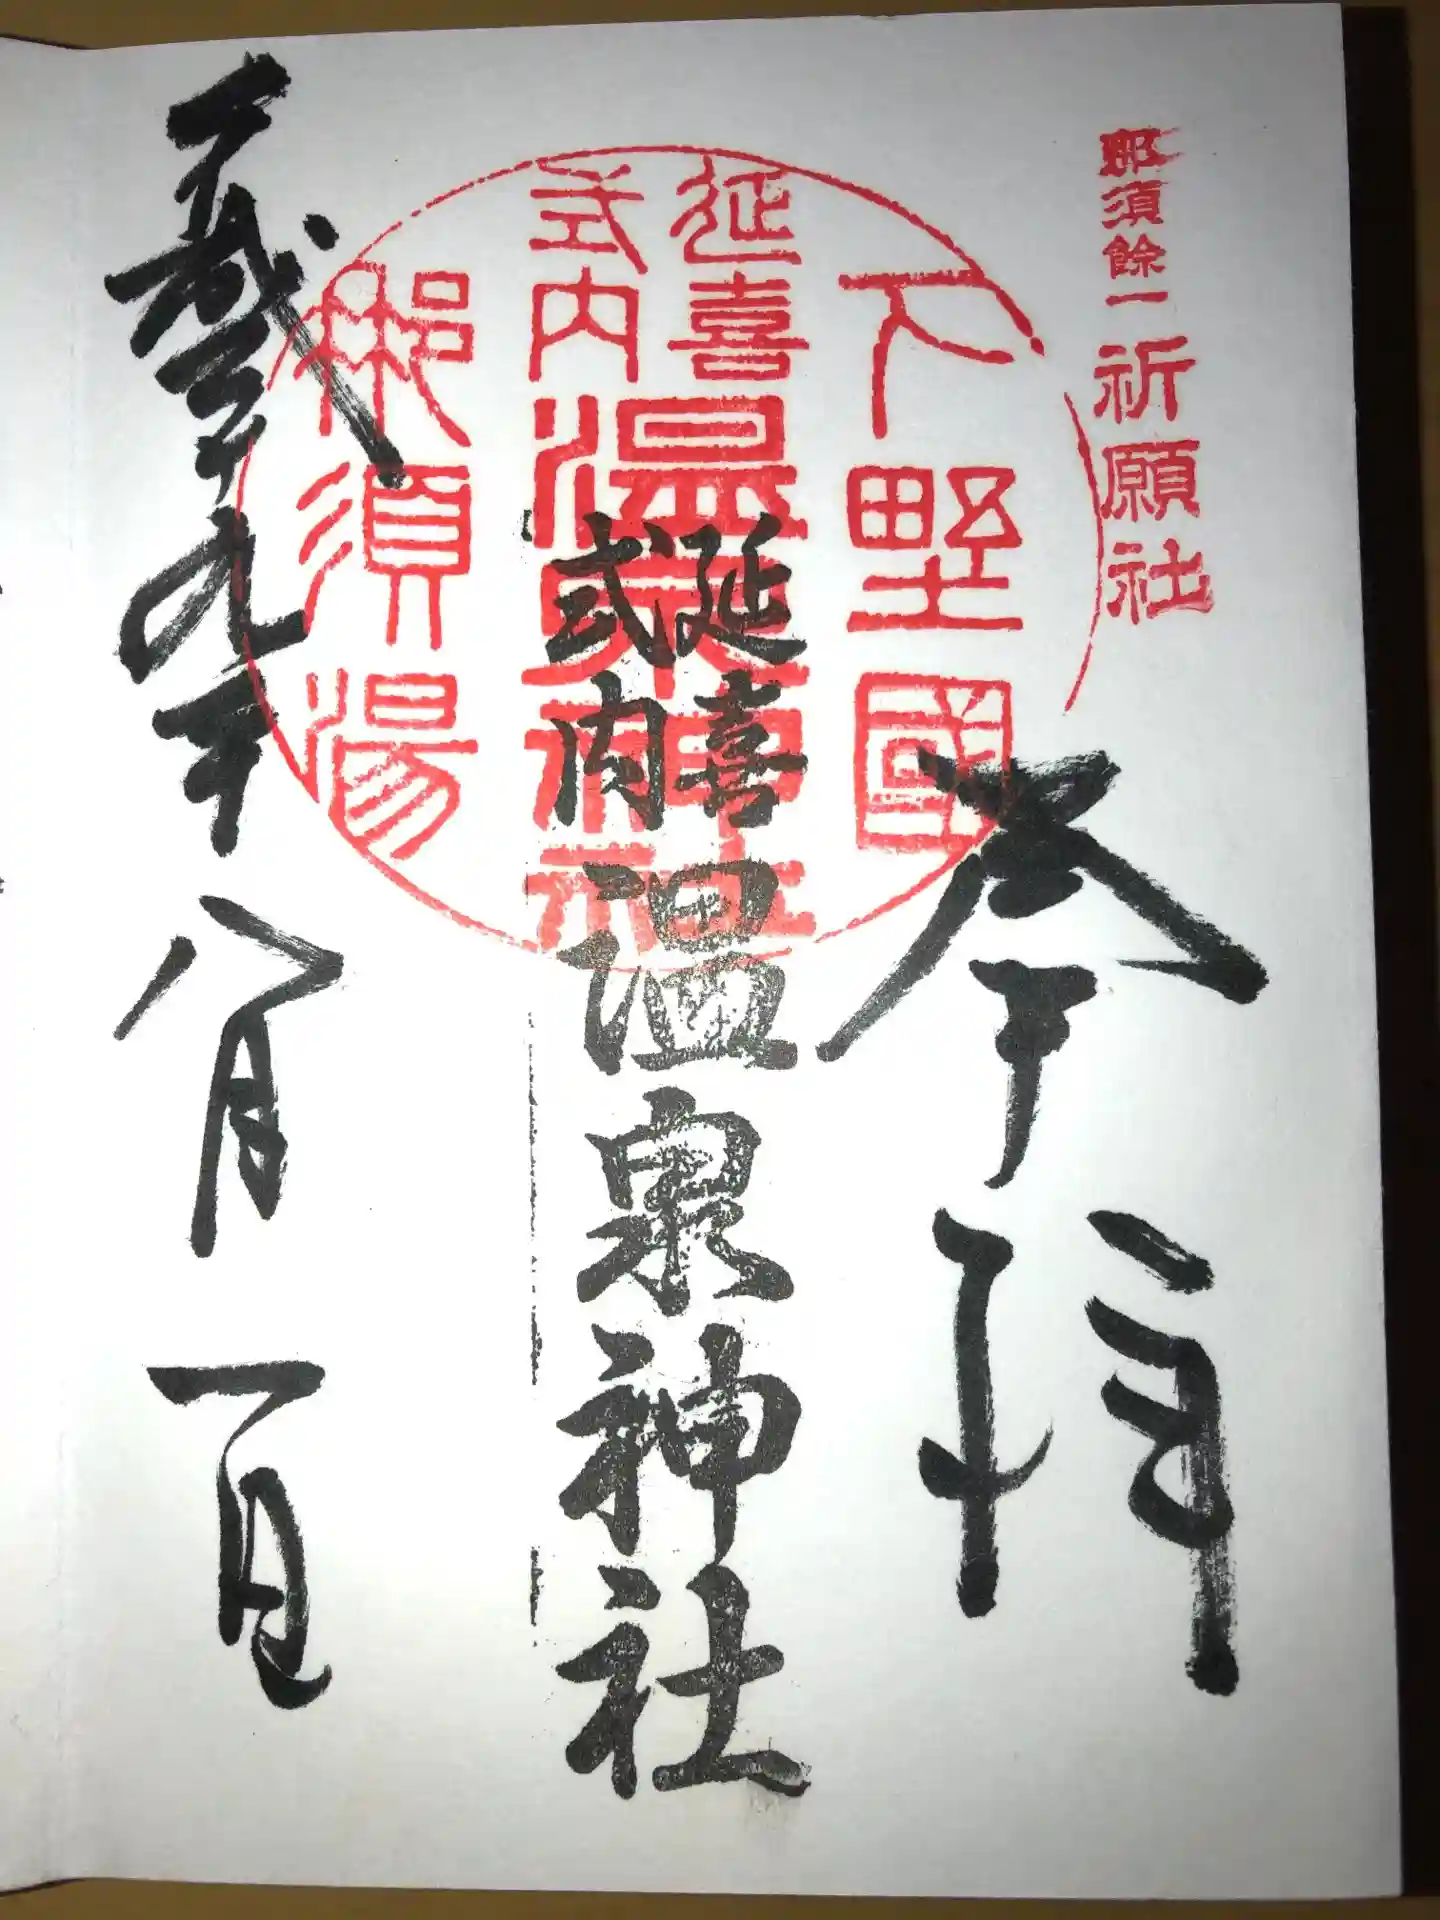 那須餘一祈願社
奉拝
下野國
延喜
式内
温泉神社
那須湯
延喜
式内
温泉神社
平成二十九年八月一日